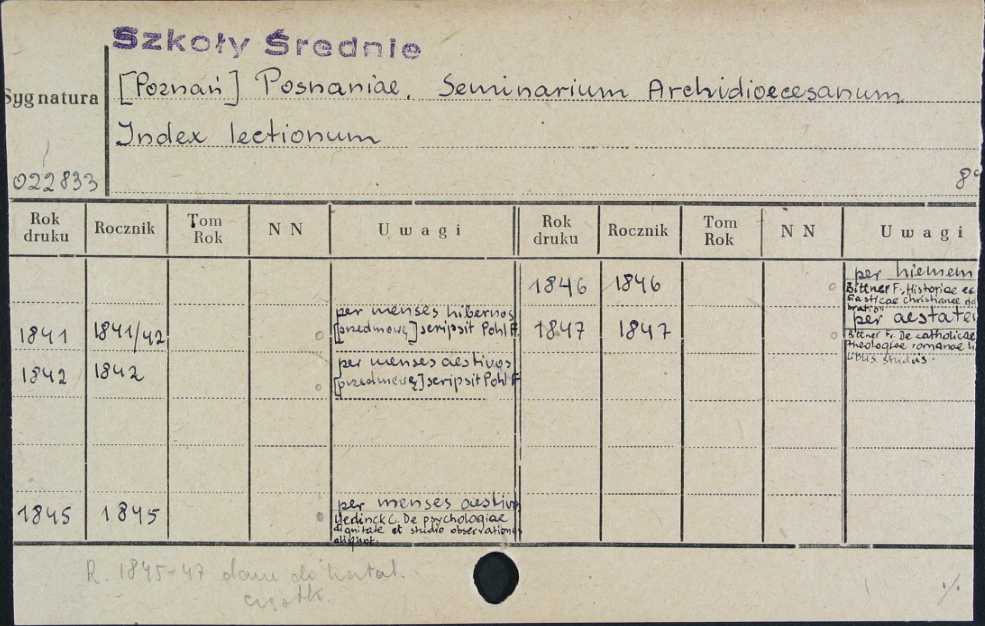 Szkoły Średnie
Sygnatura
[Poznań] Posnaniae. Seminarium Archidioecesanum
Index lectionum
022833
8°
Rok druku Rocznik Tom Rok N N Uwagi Rok druku Rocznik Tom Rok N N Uwagi
1841 1841/42 per menses hibernos
[przedmowę] scripsit Pohl F.
1842 1842 per menses aestivos
[przedmowę] scripsit Pohl F
1845 1845 per menses aestivo
C. De psychologiae
dignitate et studio observationes
aliquot.
1846 1846 per hiemem
Bittner F. Historiae ec
siasticae christianae
per aestate
1847 1847
Bittner Fr. De catholicae
theologiae romanae
studiis.
R. 1845-47 do